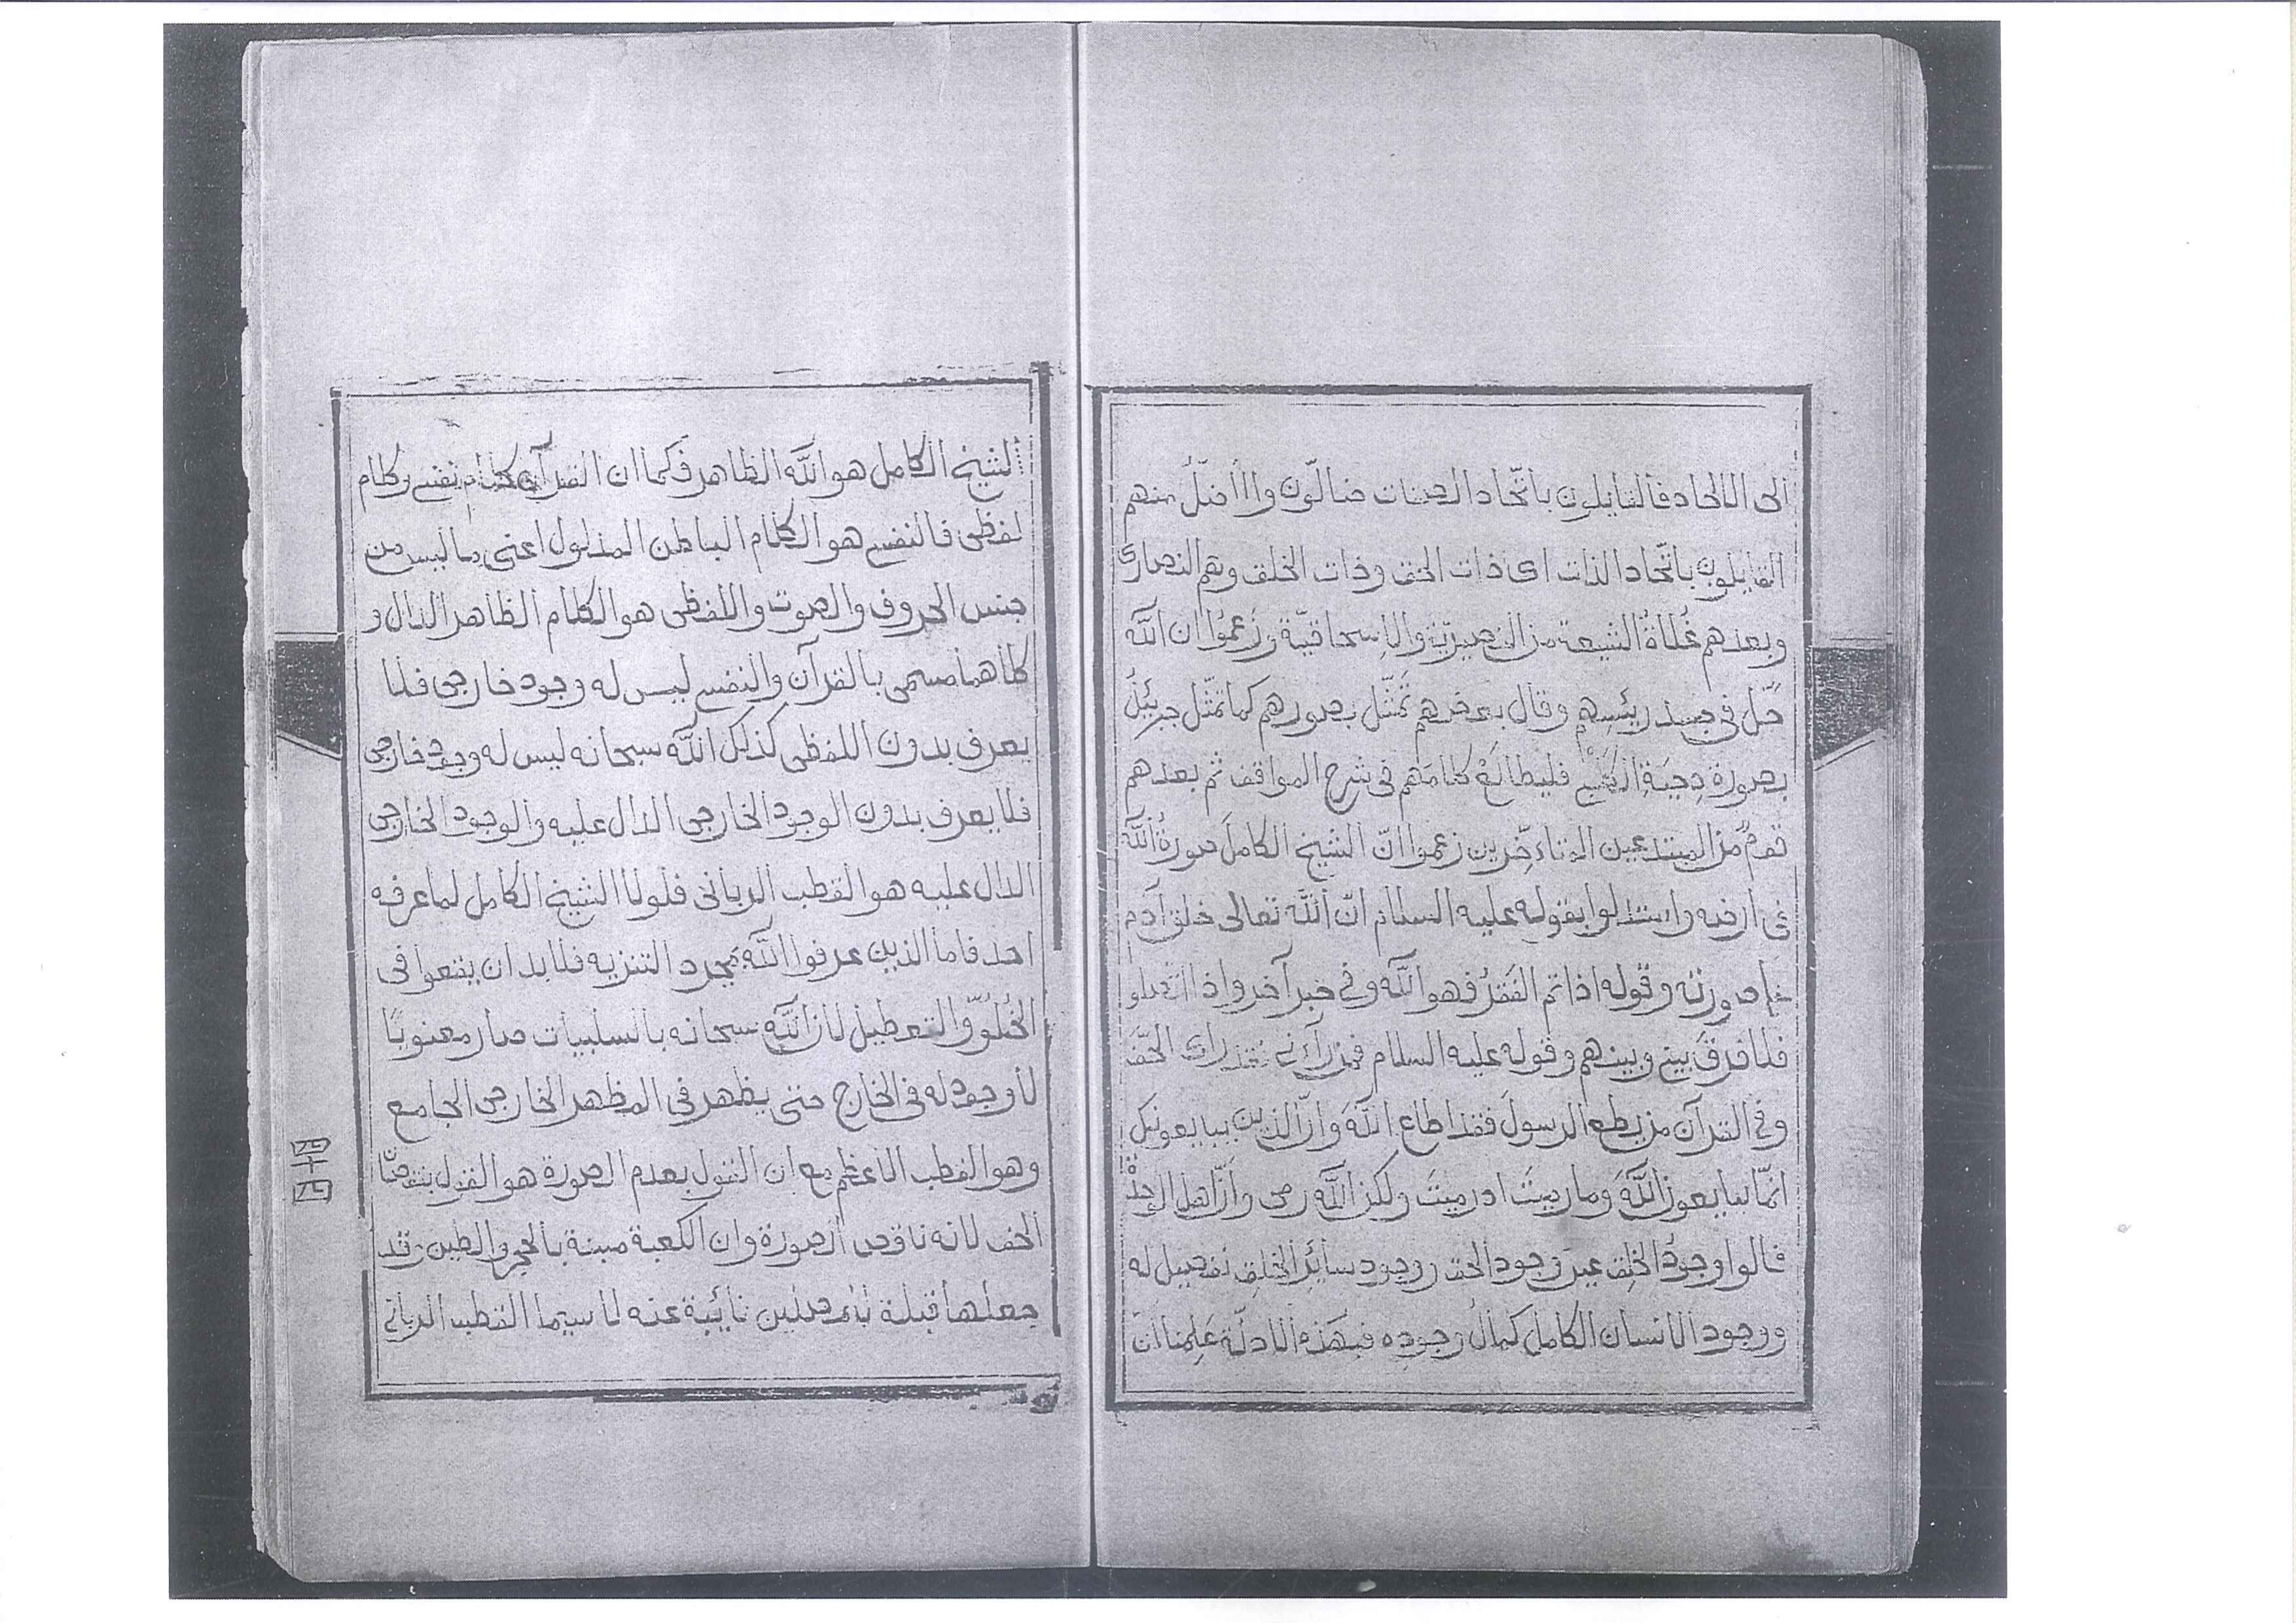 الى الالحاد فالقايلون باتّحاد الصفات ضالّون والأضلّ منهم
القايلون باتّحاد الذات اى ذات الحق وذات الخلق وهم النصارى
وبعدهم غُلاةُ الشيعة من النصيريّة والاِسحاقيّة وزَعموُا ان اللّه
حَلّ فى جسد رئيسِهِم وقال بعضهم تَمَثّل بصورهم كما تمثّل جبرئيلُ
بصورة دِحيَةِ الكَلبىّ فليطالَعْ كلامَهم فى شرح المواقف ثم بعدهم
قومٌ من المبتدعين المتاءخّرين زعموا انّ الشيخ الكاملَ صورةُ اللّه
فى ارضه واستدلوا بقوله عليه السلام انّ اللّه تعالى خلق آدم
على صورته وقوله اذا تم الفَقرُ فهو اللّه وفى خبر آخر واذا
فلا فرقَ بينى وبينهم وقوله عليه السلام فمن رآنى فقد راى الحَقّ
وفى القرآن من يطع الرسولَ فقد اطاع اللّهَ وانّ الذين يبايعونك
انّما يبايعون اللّهَ وما رميتَ اذ رميتَ ولكن اللّه رمى وانّ اهل الوحدة
قالوا وجودُ الخلق عين وجود الحق ووجود سائِر الخلق تفصيل له
ووجود الانسان الكامل كمالُ وجودِه فبهَذه الادلّة عَلِمنا انّ
الشيخ الكامل هو اللّه الظاهر فكما ان القرآن كلام نفسى وكلام
لفظى فالنفسى هو الكلام الباطن المدلول اعنى ما ليس من
جنس الحروف والصوت واللفظى هو الكلام الظاهر الدال و
كلاهما مسمى بالقرآن والنفسى ليس له وجود خارجى فلا
يعرف بدون اللفظى كذلك اللّه سبحانه ليس له وجود خارجى
فلا يعرف بدون الوجود الخارجى الدال عليه والوجود الخارجى
الدال عليه هو القطب الربانى فلولا الشيخ الكامل لما عرفه
احد فاما الذين عرفوا اللّه بمجرد التنزيه فلا بد ان يقعوا فى
الخُلُوّ والتعطيل لان اللّه سبحانه بالسلبيات صار معنويًا
لا وجود له فى الخارج حتى يظهر فى المظهر الخارجى الجامع
وهو القطب الاعظم مع ان القول بعدم الصورة هو القول بنقصان
الحق لانه ناقص الصورة وان الكعبة مبنية بالحجر والطين وقد
جعلها قبلة للمصلين نائبة عنه لا سيما القطب الربانى